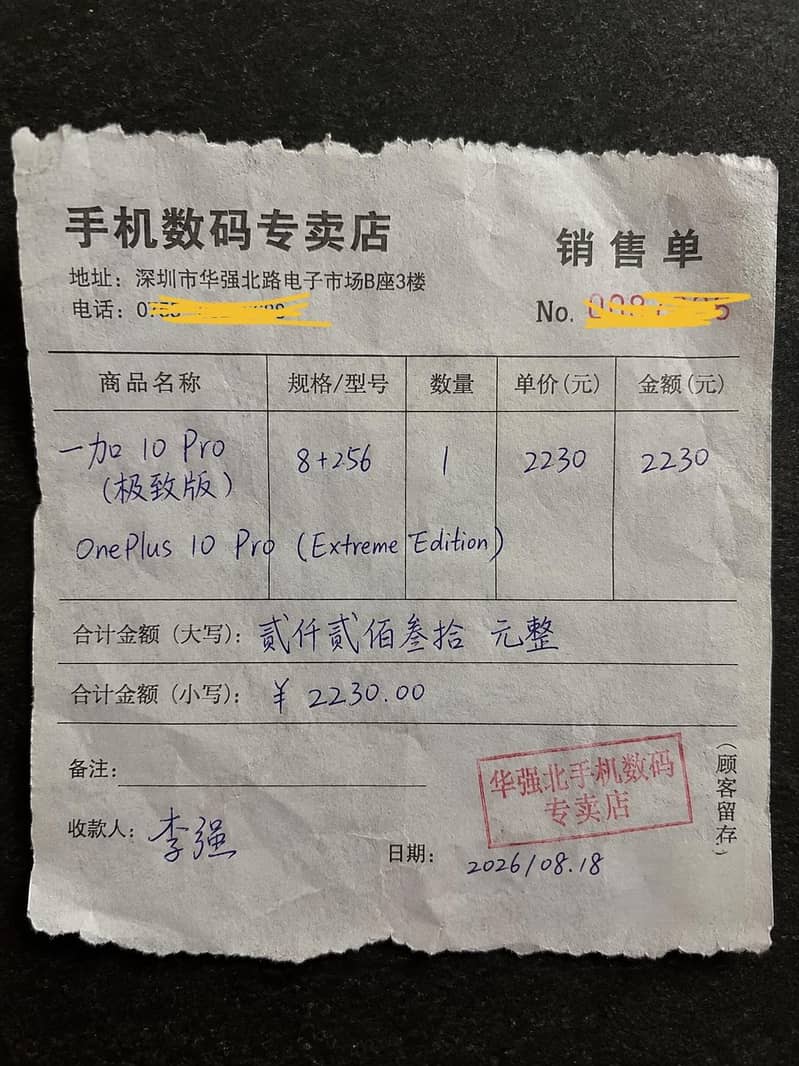 手机数码专卖店
销售单
地址：深圳市华强北路电子市场B座3楼
电话：
No.
商品名称 规格/型号 数量 单价(元) 金额(元)
一加 10 Pro 8+256 1 2230 2230
(极致版)
OnePlus 10 Pro (Extreme Edition)
合计金额（大写）：贰仟贰佰叁拾 元整
合计金额（小写）：¥ 2230.00
备注：
华强北手机数码
专卖店
（顾客留存）
收款人：李强
日期：2026/08.18